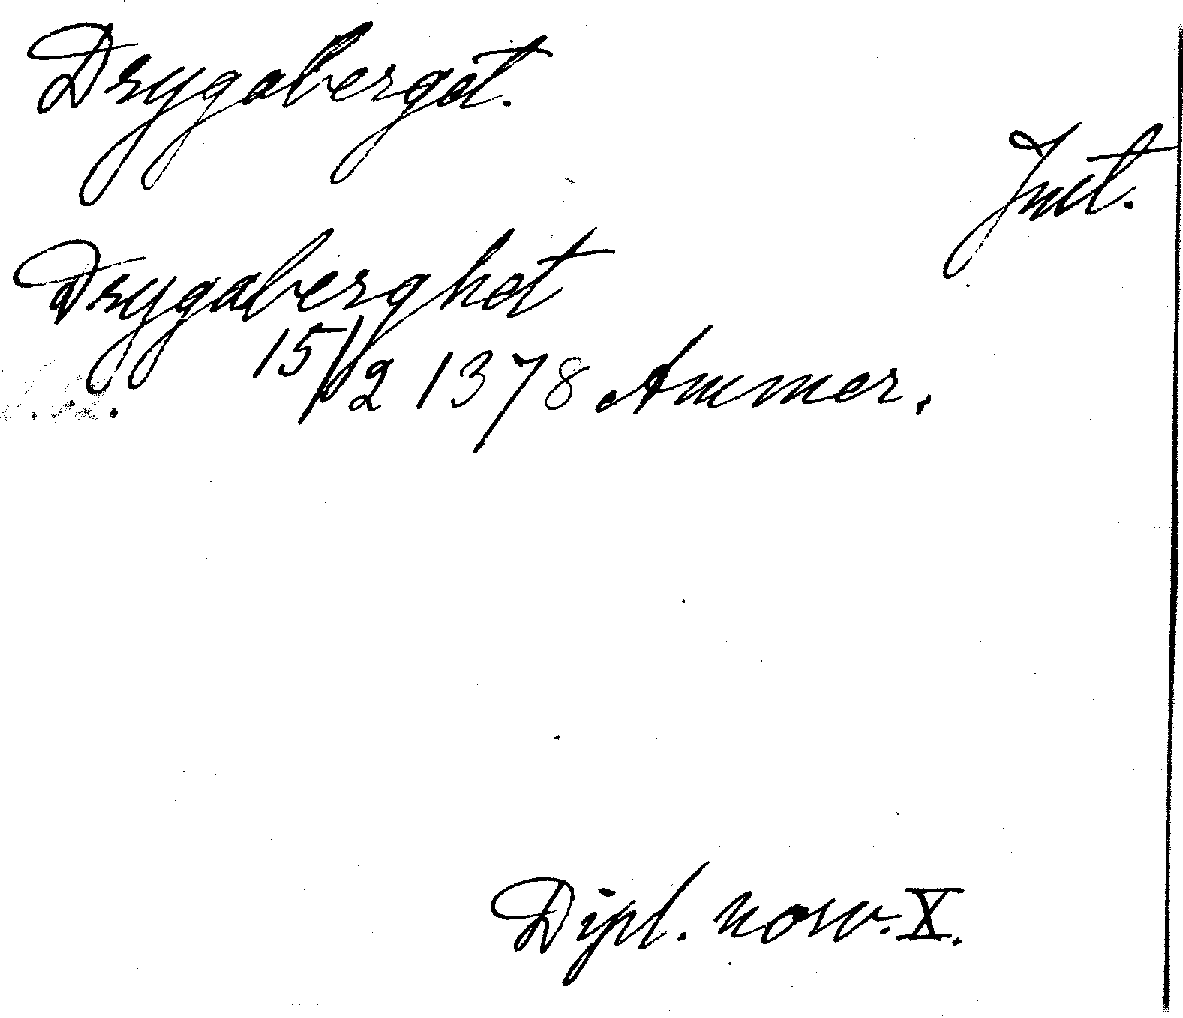 Drygaberget.
Jmt.
Drygaberghet
15/2 1378 Ammer.
Dipl. norv. X.